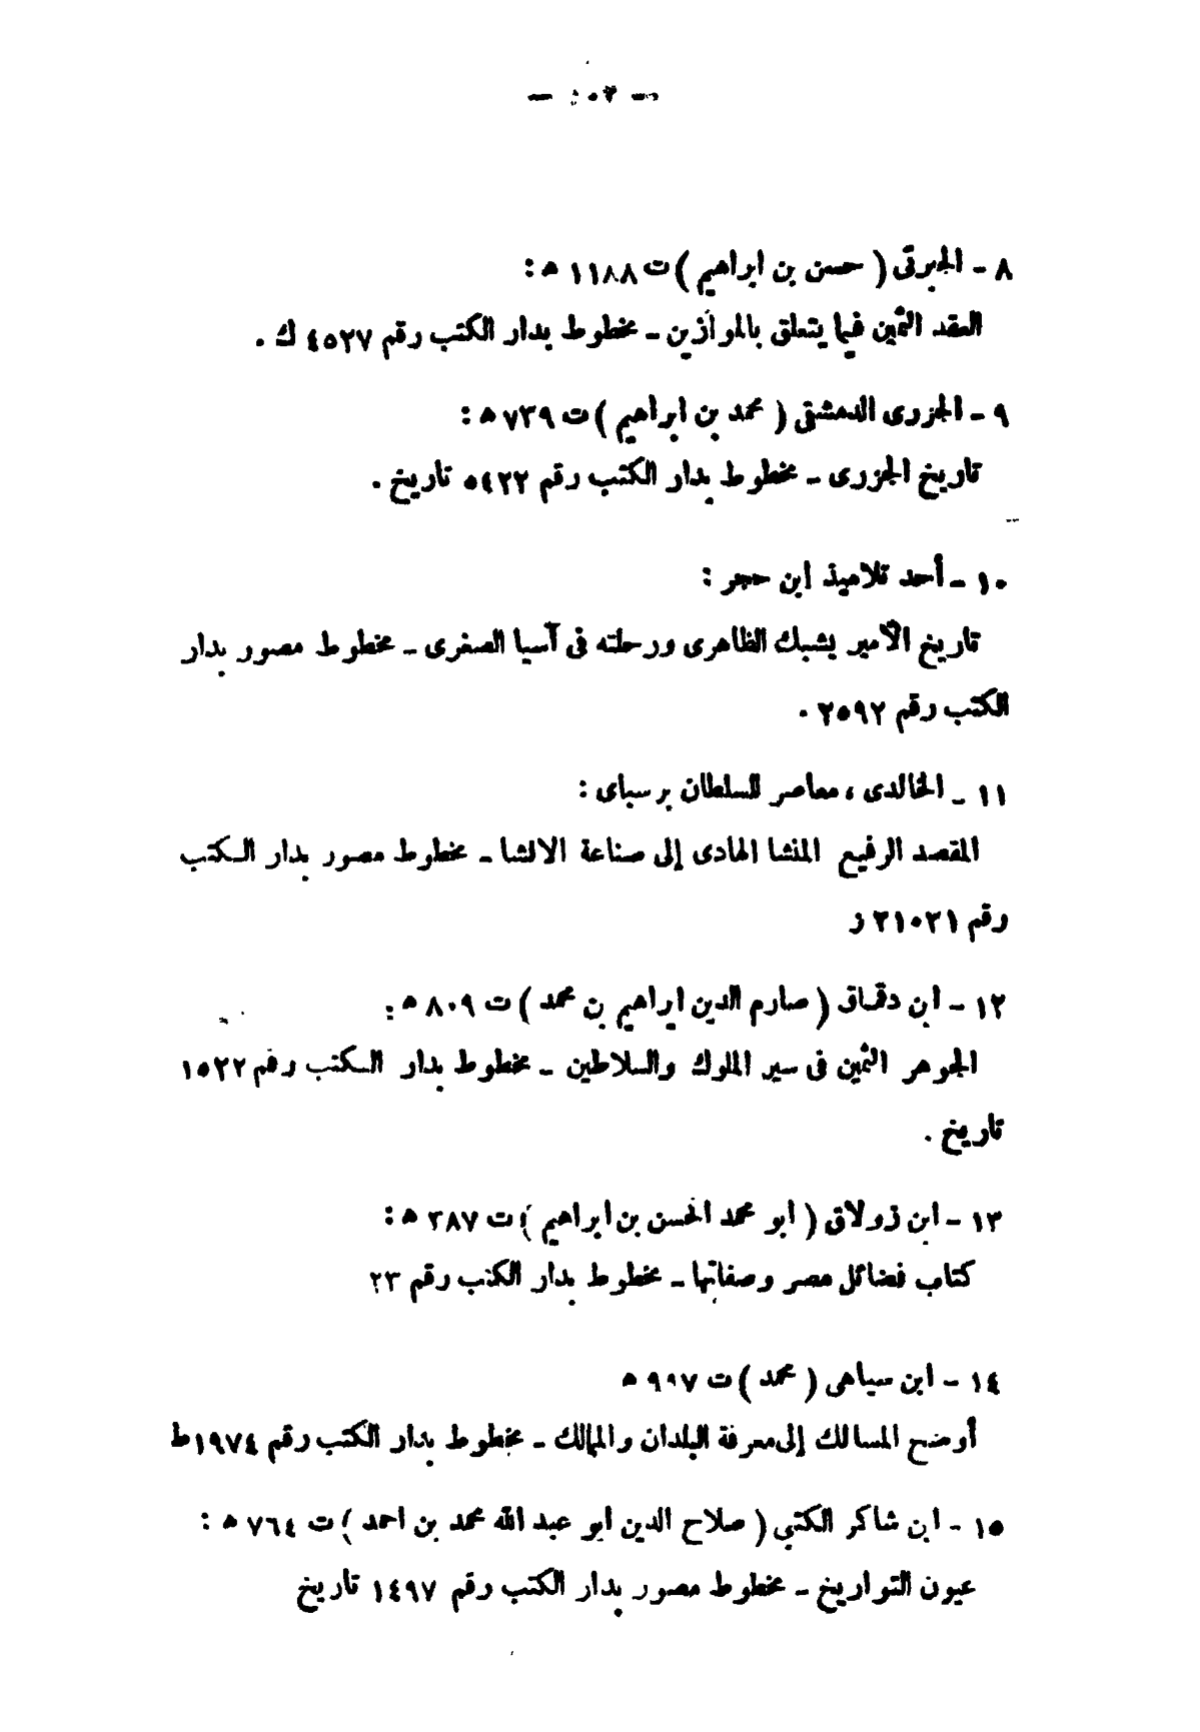 ٨ - الجبرتى ( حسن بن ابراهيم ) ت ١١٨٨ ه :
العقد الثمين فيما يتعلق بالموازين - مخطوط بدار الكتب رقم ٤٥٢٧ ك .
٩ - الجزرى الدمشقى ( محمد بن ابراهيم ) ت ٧٣٩ ه :
تاريخ الجزرى - مخطوط بدار الكتب رقم ٥٤٢٢ تاريخ .
١٠ - أحد تلاميذ ابن حجر :
تاريخ الأمير يشبك الظاهرى ورحلته فى آسيا الصغرى - مخطوط مصور بدار
الكتب رقم ٢٥٩٢ .
١١ - الخالدى ، معاصر للسلطان برسباى :
المقصد الرفيع المنشا الهادى إلى صناعة الانشا - مخطوط مصور بدار الكتب
رقم ٢١٠٢١ ز
١٢ - ابن دقماق ( صارم الدين ابراهيم بن محمد ) ت ٨٠٩ ه :
الجوهر الثمين فى سير الملوك والسلاطين - مخطوط بدار الكتب رقم ١٥٢٢
تاريخ .
١٣ - ابن زولاق ( ابو محمد الحسن بن ابراهيم ) ت ٣٨٧ ه :
كتاب فضائل مصر وصفاتها - مخطوط بدار الكتب رقم ٢٣
١٤ - ابن سباهى ( محمد ) ت ٩٩٧ ه
أوضح المسالك إلى معرفة البلدان والممالك - مخطوط بدار الكتب رقم ١٩٧٤ ط
١٥ - ابن شاكر الكتبي ( صلاح الدين ابو عبد الله محمد بن احمد ) ت ٧٦٤ ه :
عيون التواريخ - مخطوط مصور بدار الكتب رقم ١٤٩٧ تاريخ